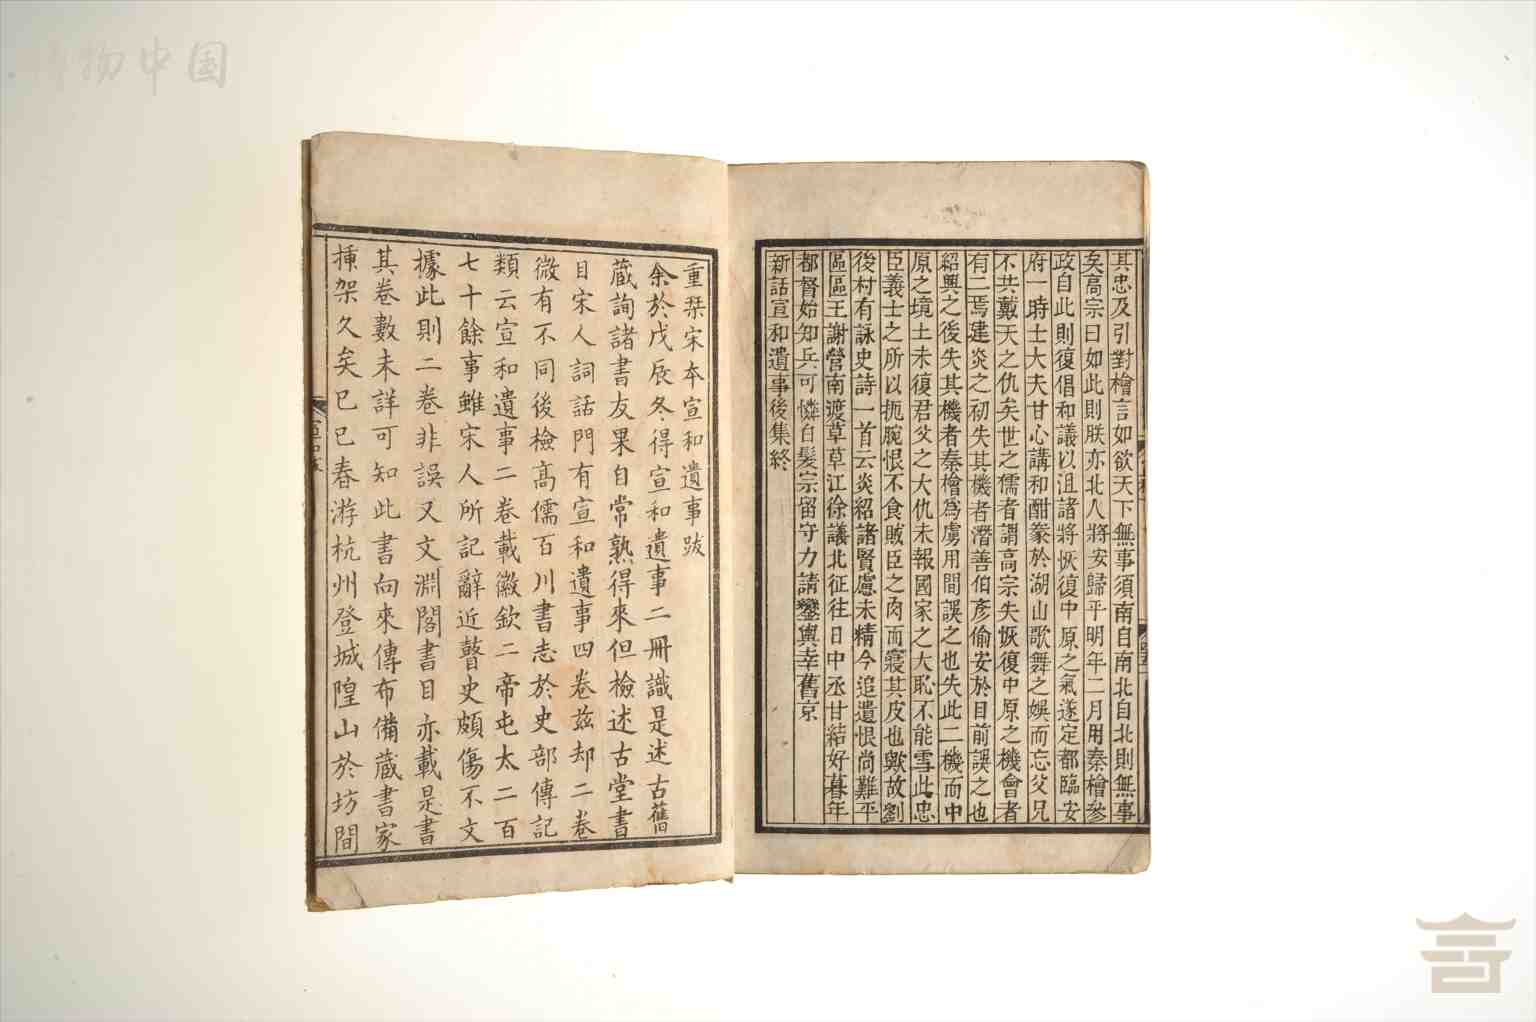 其忠及引對檜言如欲天下無事須南自南北自北則無事
矣高宗曰如此則朕亦北人將安歸乎明年二月用秦檜參
政自此則復倡和議以沮諸將恢復中原之氣遂定都臨安
府一時士大夫甘心講和酣豢於湖山歌舞之娛而忘父兄
不共戴天之仇矣世之儒者謂高宗失恢復中原之機會者
有二焉建炎之初失其機者潛善伯彥偷安於目前誤之也
紹興之後失其機者秦檜為虜用間誤之也失此二機而中
原之境土未復君父之大仇未報國家之大恥不能雪此忠
臣義士之所以扼腕恨不食賊臣之肉而寢其皮也歟故劉
後村有詠史詩一首云炎紹諸賢慮未精今追遺恨尚難平
區區王謝營南渡草草江徐議北征往日中丞甘結好暮年
都督始知兵可憐白髮宗留守力請鑾輿幸舊京
新話宣和遺事後集終
重栞宋本宣和遺事跋
余於戊辰冬得宣和遺事二冊識是述古舊
藏詢諸書友果自常熟得來但檢述古堂書
目宋人詞話門有宣和遺事四卷茲却二卷
微有不同後檢高儒百川書志於史部傳記
類云宣和遺事二卷載徽欽二帝屯太二百
七十餘事雖宋人所記辭近瞽史頗傷不文
據此則二卷非誤又文淵閣書目亦載是書
其卷數未詳可知此書向來傳布備藏書家
揷架久矣已巳春游杭州登城隍山於坊間
博物中国